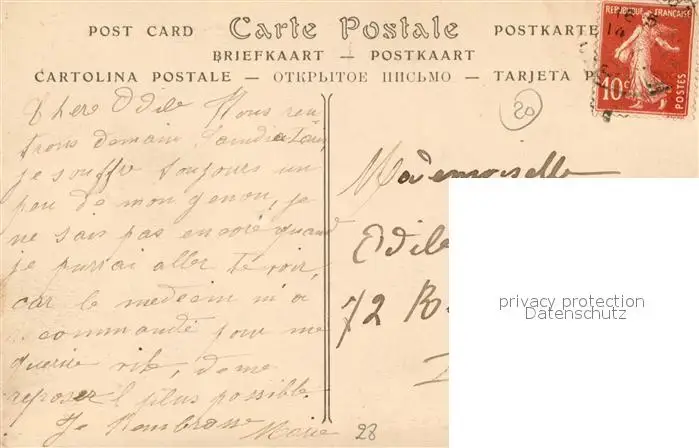 POST CARD Carte Postale POSTKARTE
BRIEFKAART — POSTKAART
CARTOLINA POSTALE — ОТКРЫТОЕ ПИСЬМО — TARJETA P
REPUBLIQUE FRANÇAISE
10c POSTES
20
Chere Odile Nous ren
trons demain
je souffre toujours un
peu de mon genou, je
ne sais pas encore quand
je purrai aller te voir,
car le medecin m'a
recommandé pour me
guerir vite, de me
reposer l plus possible.
Je t'embrasse
Marie
28
Mademoiselle
Odile
72 R
privacy protection
Datenschutz